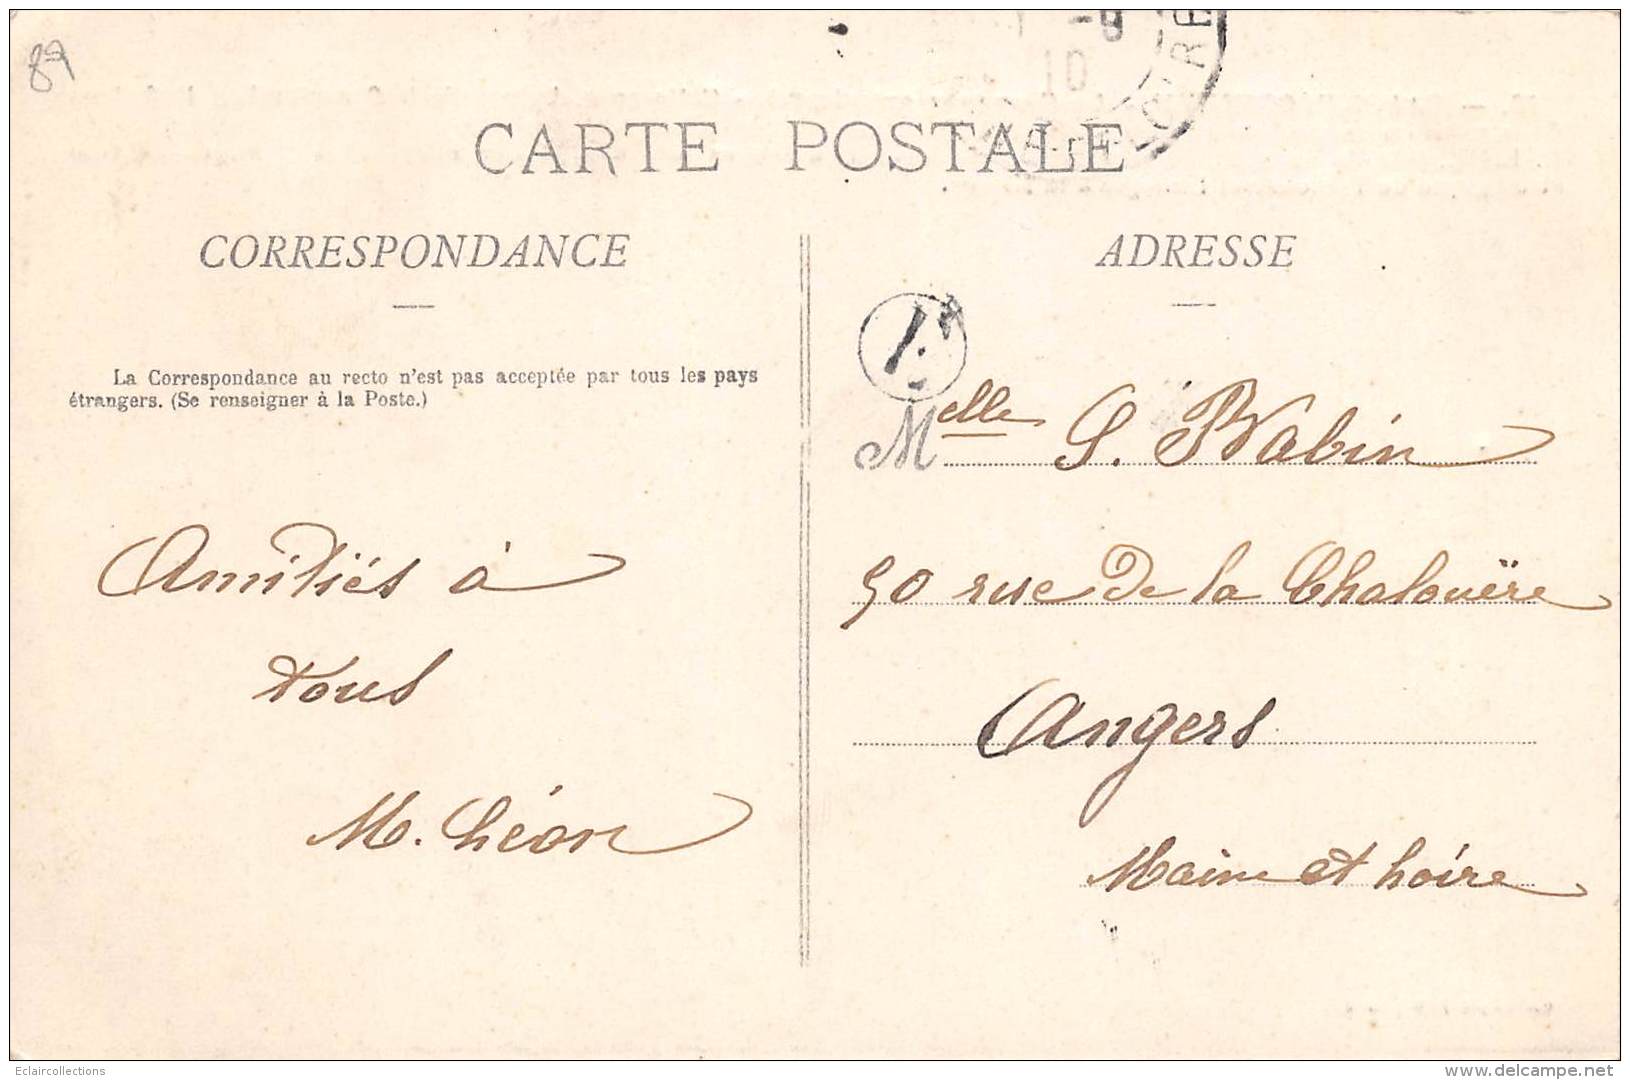 89
-9
10
CARTE POSTALE
CORRESPONDANCE
ADRESSE
La Correspondance au recto n'est pas acceptée par tous les pays
étrangers. (Se renseigner à la Poste.)
Amitiés à
tous
M. Léon
Melle S.
90 rue de la Chalouère
Angers
Maine et Loire
Eclaircollections
delcampe.net